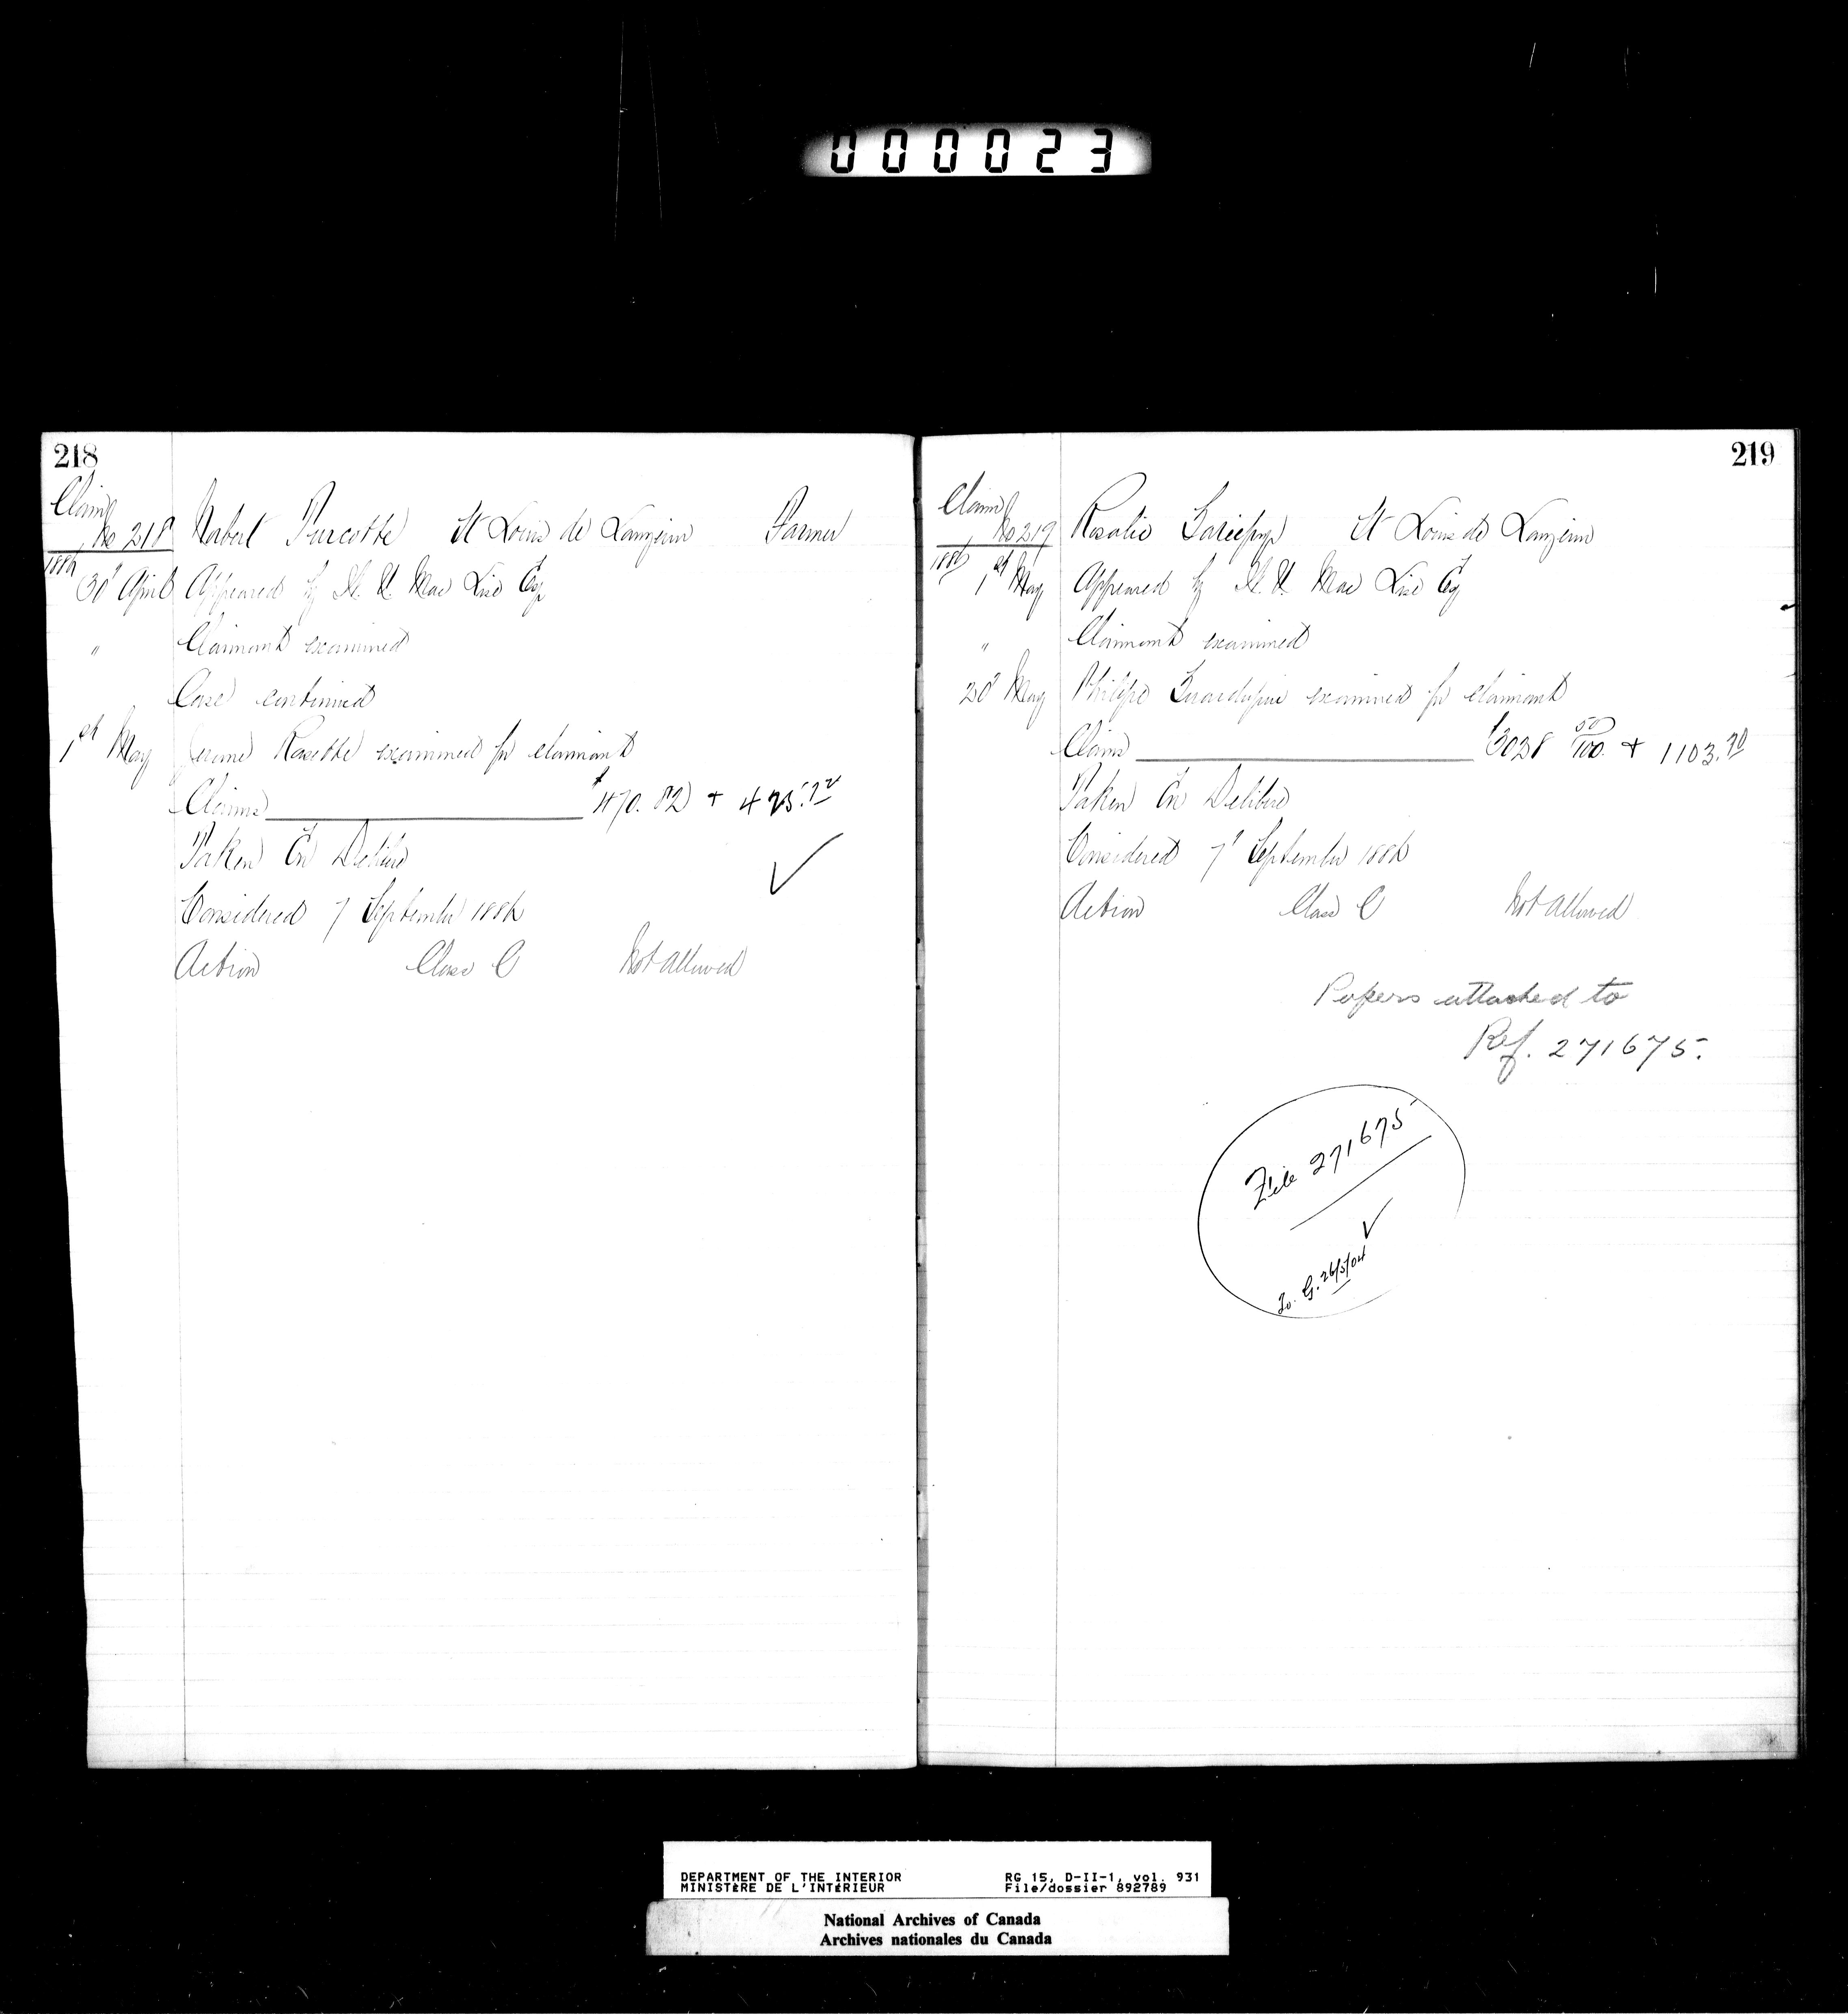 000023
218
Claim
No 218 Norbert Turcotte St Louis de Langevin Farmer
1886
30' April Appeared by H. U. Mac Lise Esq
" Claimant examined
Case continued
1st May Jerome Rasette examined for claimant
Claims $1170.82 +
Taken En Délibéré
Considered 7 September 1886
Action Class C Not allowed
219
Claim
No 219 Rosalie Gariepy St Louis de Langevin
1886
1st May Appeared by H. U. Mac Lise Esq
" Claimant examined
20' May Philipe Guardupui examined for claimant
Claims $3028 50/100. + 1103.70
Taken En Délibéré
Considered 7' September 1886
Action Class C Not allowed
Papers attached to
Ref. 271675.
File 271675
26/5/04
DEPARTMENT OF THE INTERIOR RG 15, D-II-1, vol. 931
MINISTÈRE DE L'INTÉRIEUR File/dossier 892789
National Archives of Canada
Archives nationales du Canada